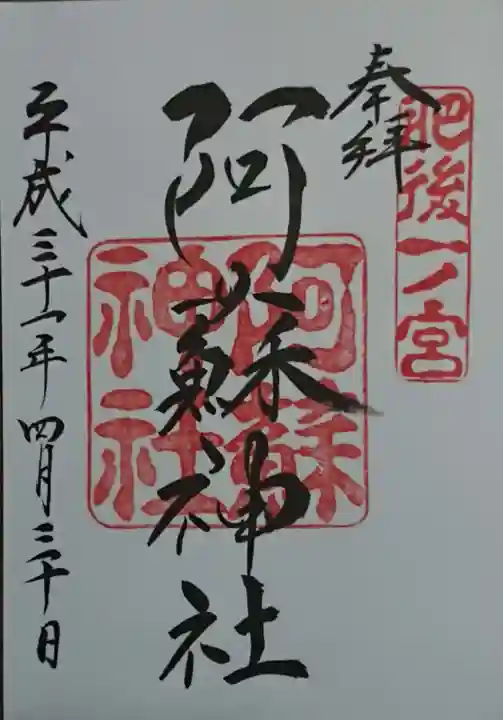 奉拝
肥後一ノ宮
阿蘇神社
阿蘇神社
平成三十一年四月三十日